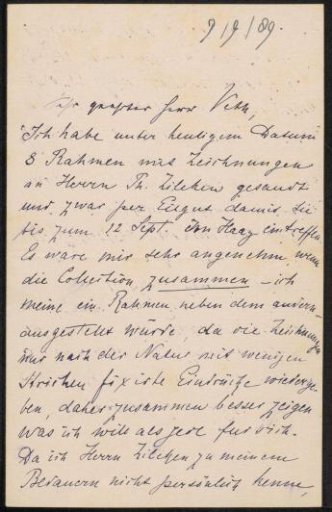 9/9/89.
Sehr geehrter Herr Veth,
Ich habe unter heutigem Datum
8 Rahmen mit Zeichnungen
an Herrn Th. Zilcken gesandt
und zwar per Eilgut damit sie
bis zum 12 Sept. im Haag eintreffen
Es wäre mir sehr angenehm, wenn
die Collection zusammen – ich
meine ein Rahmen neben dem andern –
ausgestellt würde, da die Zeichnungen
nur nach der Natur mit wenigen
Strichen fixirte Eindrücke wiederge-
ben, daher zusammen besser zeigen
was ich will als jede für sich.
Da ich Herrn Zilcken zu meinem
Bedauern nicht persönlich kenne,